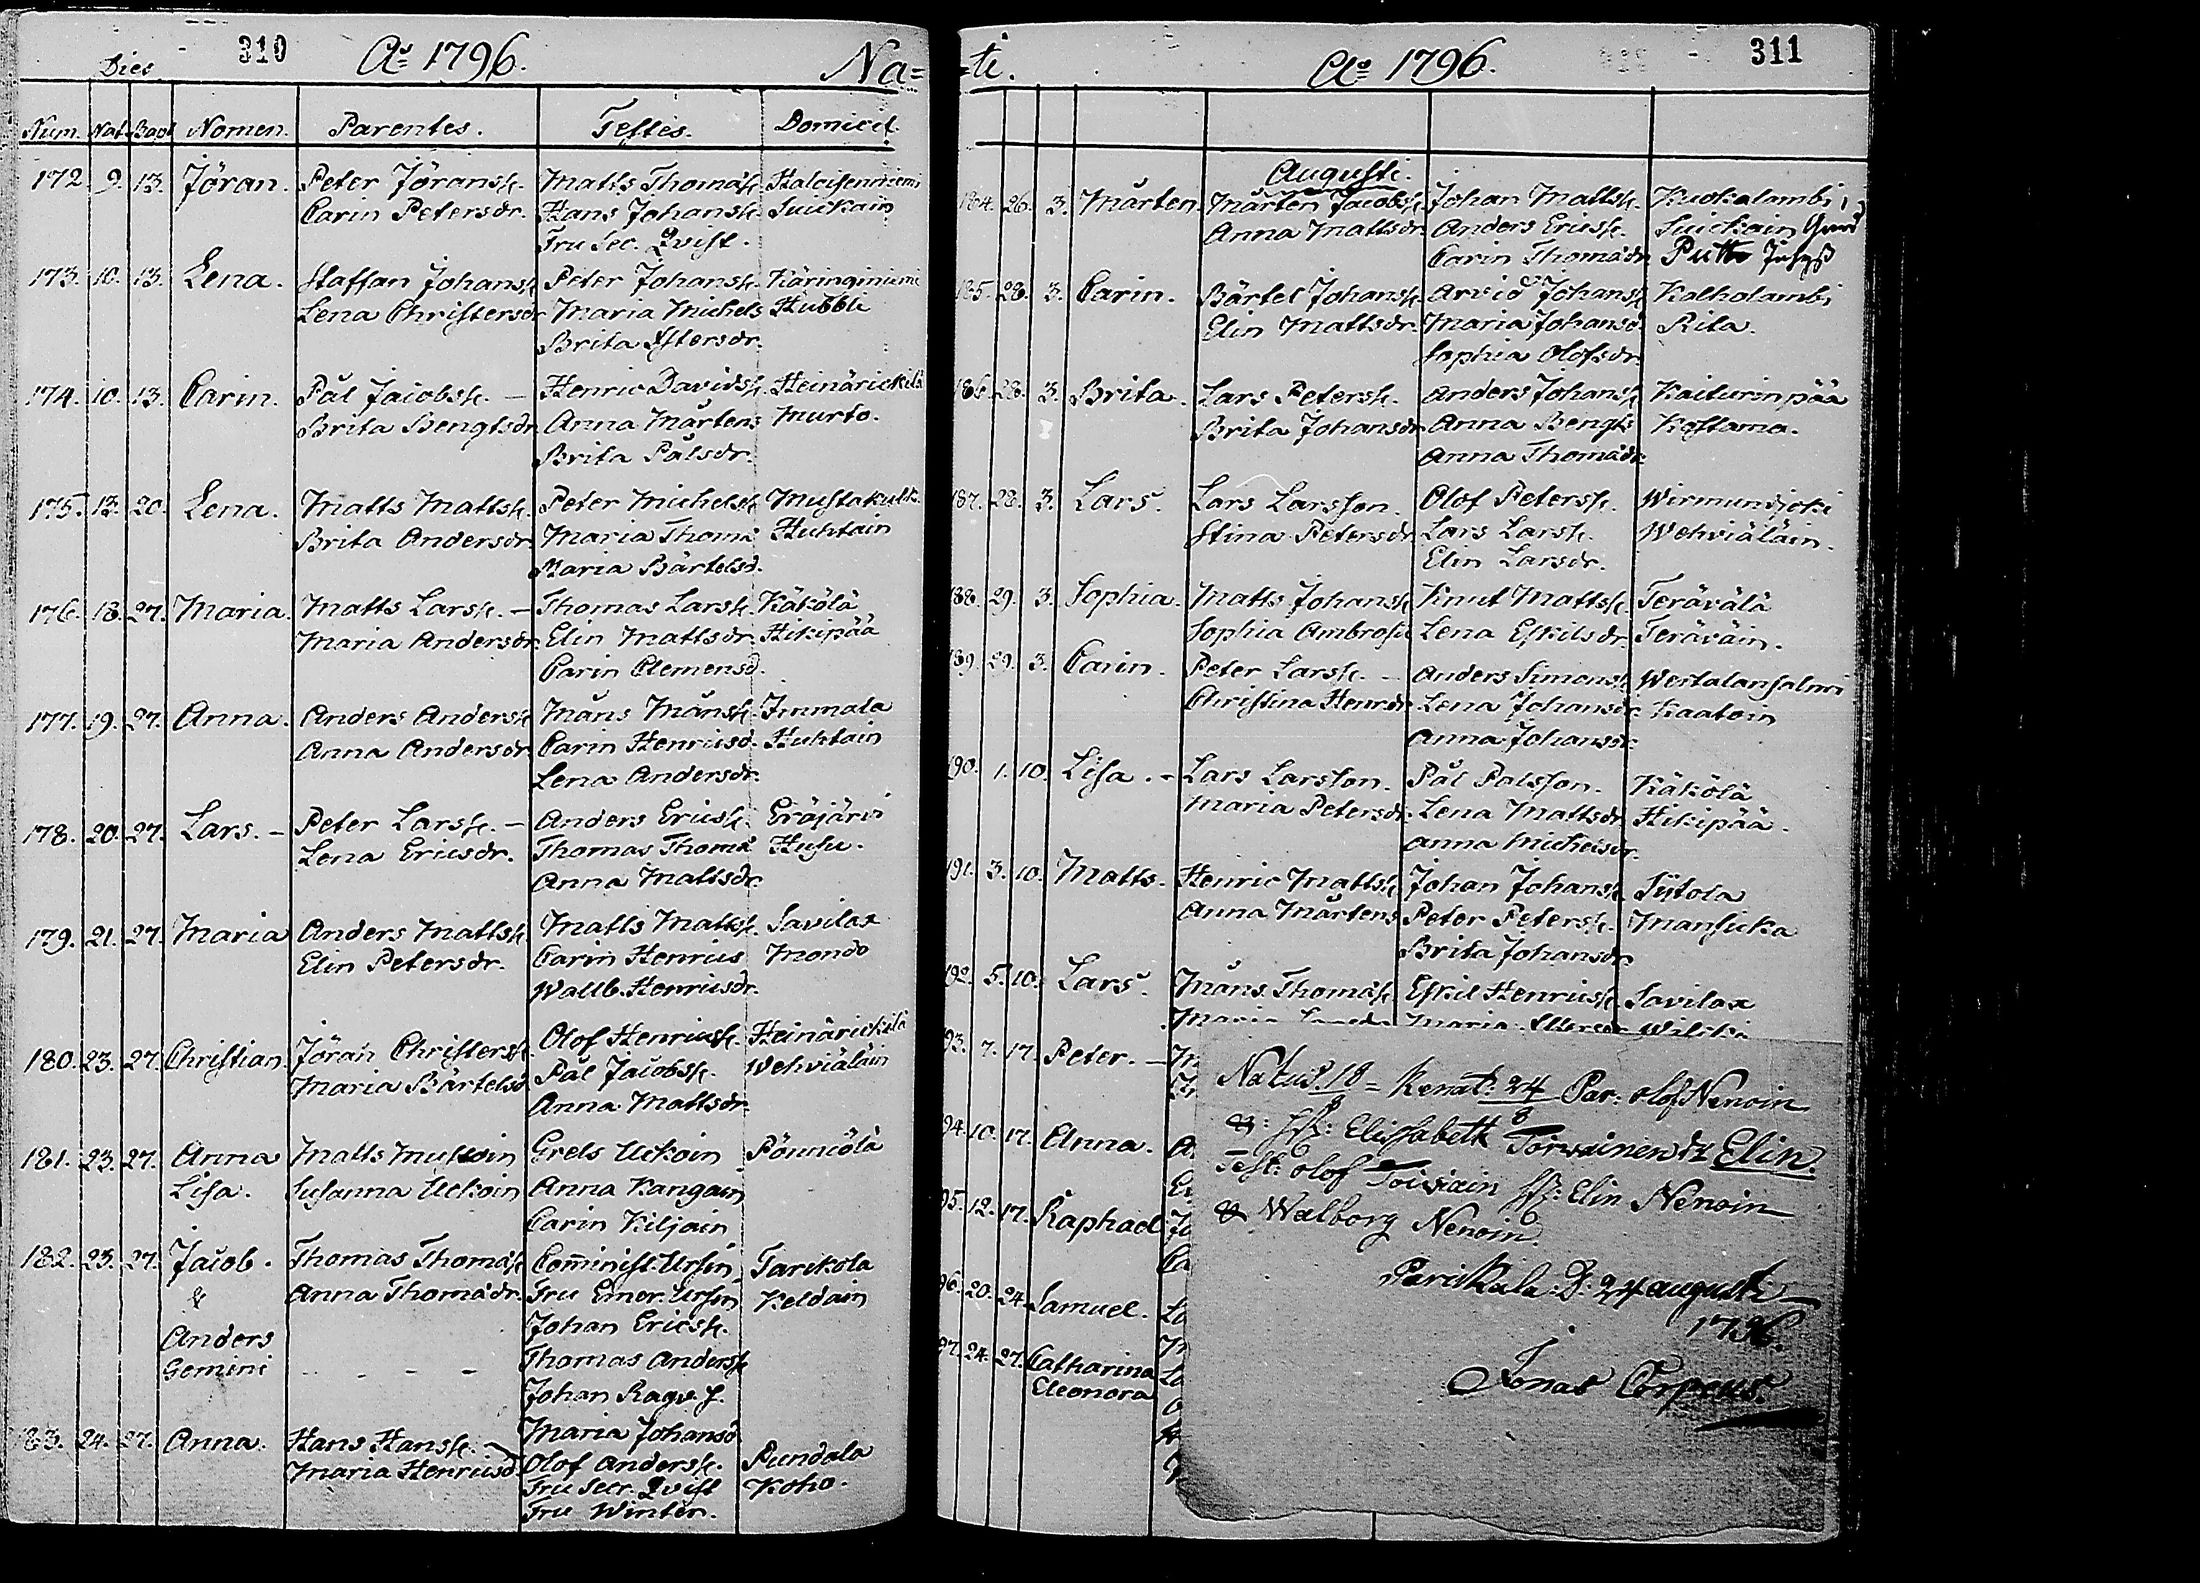 310
Aō 1796.
Na=
Dies
Num. Nat. Bapt Nomen. Parentes. Testes. Domicil.
172. 9. 13. Jöran. Peter Jöransk. Matts Thomask. Haloisenniemi
Carin Petersdr. Hans Johansk. Suickain
Fru Sec. Qvist.
173. 10. 13. Lena. Staffan Johansk Peter Johansk. Käringiniemi
Lena Christersdr Maria Michels Hubbli
Brita Estersdr.
174. 10. 13. Carin. Pål Jacobsk. — Henric Davidsk. Heinärickilä
Brita Bengtsdr Anna Mårtens Murto.
Brita Pålsdr.
175. 13. 20. Lena. Matts Mattsk. Peter Michelsk Mustakulk.
Brita Andersdr. Maria Thoma Huhtain
Maria Bärtelsd.
176. 18. 27. Maria. Matts Larsk. — Thomas Larsk. Käkölä
Maria Andersdr. Elin Mattsdr. Hikipää
Carin Clemensd.
177. 19. 27. Anna. Anders Andersk Måns Månsk. Immala
Anna Andersdr. Carin Henricsd. Huhtain
Lena Andersdr.
178. 20. 27. Lars. — Peter Larsk. — Anders Ericsk. Eräjärvi
Lena Ericsdr. Thomas Thoma Husu.
Anna Mattsdr.
179. 21. 27. Maria Anders Mattsk. Matts Mattsk. Savilax
Elin Petersdr. Carin Henrics Mondo
Wallb. Henricsdr.
180. 23. 27. Christian. Jöran Christersk. Olof Henricsk. Heinärickilä
Maria Bärtelsd Pål Jacobsk. Wehviäläin
Anna Mattsdr.
181. 23. 27. Anna Matts Mustoin Grels Uckoin Pönniölä
Lisa. Susanna Uckoin Anna Kangain
Carin Kiljain
182. 23. 27. Jacob. Thomas Thomask Com̄inist. Ursin Tarckola
& Anna Thomadr. Fru Emer. Ursin Keldain
Johan Ericsk.
Anders Thomas Andersk
Gemini - - - Johan Ragv. f.
Maria Johansd
183. 24. 27. Anna. Hans Hansk. Olof Andersk. Pundala
Maria Henricsd Fru Secr. Qvist Koho.
Fru Winter.
=ti.
Aō 1796.
311
Augusti.
184. 26. 3. Mårten. Mårten Jacobsk. Johan Mattsk. Kuokalambi
Anna Mattsdr. Anders Ericsk. Suickain
Carin Thomadr. Putto
185. 28. 3. Carin. Bärtel Johansk. Arvid Johansk Kalholambi
Elin Mattsdr. Maria Johansd. Rita.
Sophia Olofsdr.
186. 28. 3. Brita. Lars Petersk. Anders Johansk Kaiturinpää
Brita Johansdr Anna Bengts Kostama.
Anna Thomadr.
187. 28. 3. Lars. Lars Larsson. Olof Petersk. Wirmundjoki
Stina Petersdr Lars Larsk. Wehviäläin.
Elin Larsdr.
188. 29. 3. Sophia. Matts Johansk Knut Mattsk. Terävälä
Sophia Ambrosii Lena Eskilsdr. Teräväin.
189. 29. 3. Carin. Peter Larsk. — Anders Simonsk Wertalansalmi
Christina Henrdr. Lena Johansdr. Kaatoin
Anna Johansdr.
190. 1. 10. Lisa. - Lars Larsson. Pål Palsson. Käkölä
Maria Petersdr. Lena Mattsdr. Hikipää.
Anna Michelsdr.
191. 3. 10. Matts. Henric Mattsk Johan Johansk Tÿtola
Anna Mårtens Peter Petersk. Mansicka
Brita Johansdr.
192. 5. 10. Lars. Måns Thomask Eskil Henricsk. Savilax
93. 7. 17. Peter. —
94. 10. 17. Anna.
95. 12. 17. Raphael
96. 20. 24. Samuel.
97. 24. 27. Catharina
Eleonora
Natus. 18/8 = Renat: 24/8 Par: olof Nenoin
& Elissabeth Torvainen Elin.
Test: olof Toiviain Elin Nenoin
& Walborg Nenoin.
Parikala. D. 24 augusti
1796.
Jonas Corpeus.